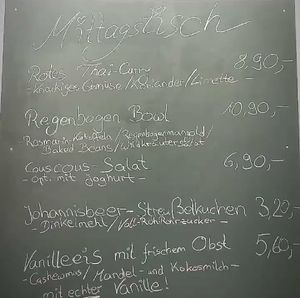 Mittagstisch
Rotes Thai-Curry 8,90,-
-knackiges Gemüse/Koriander/Limette-
Regenbogen Bowl 10,90,-
Rosmarin Kartoffeln/Regenbogenmangold/
Baked Beans/Wildkräutersalat
Couscous-Salat 6,90,-
-opt. mit Joghurt-
Johannisbeer-Streußelkuchen 3,20,-
-Dinkelmehl/Voll-Rohrohrzucker-
Vanilleeis mit frischem Obst 5,60,-
-Cashewmus/Mandel- und Kokosmilch-
mit echter Vanille!